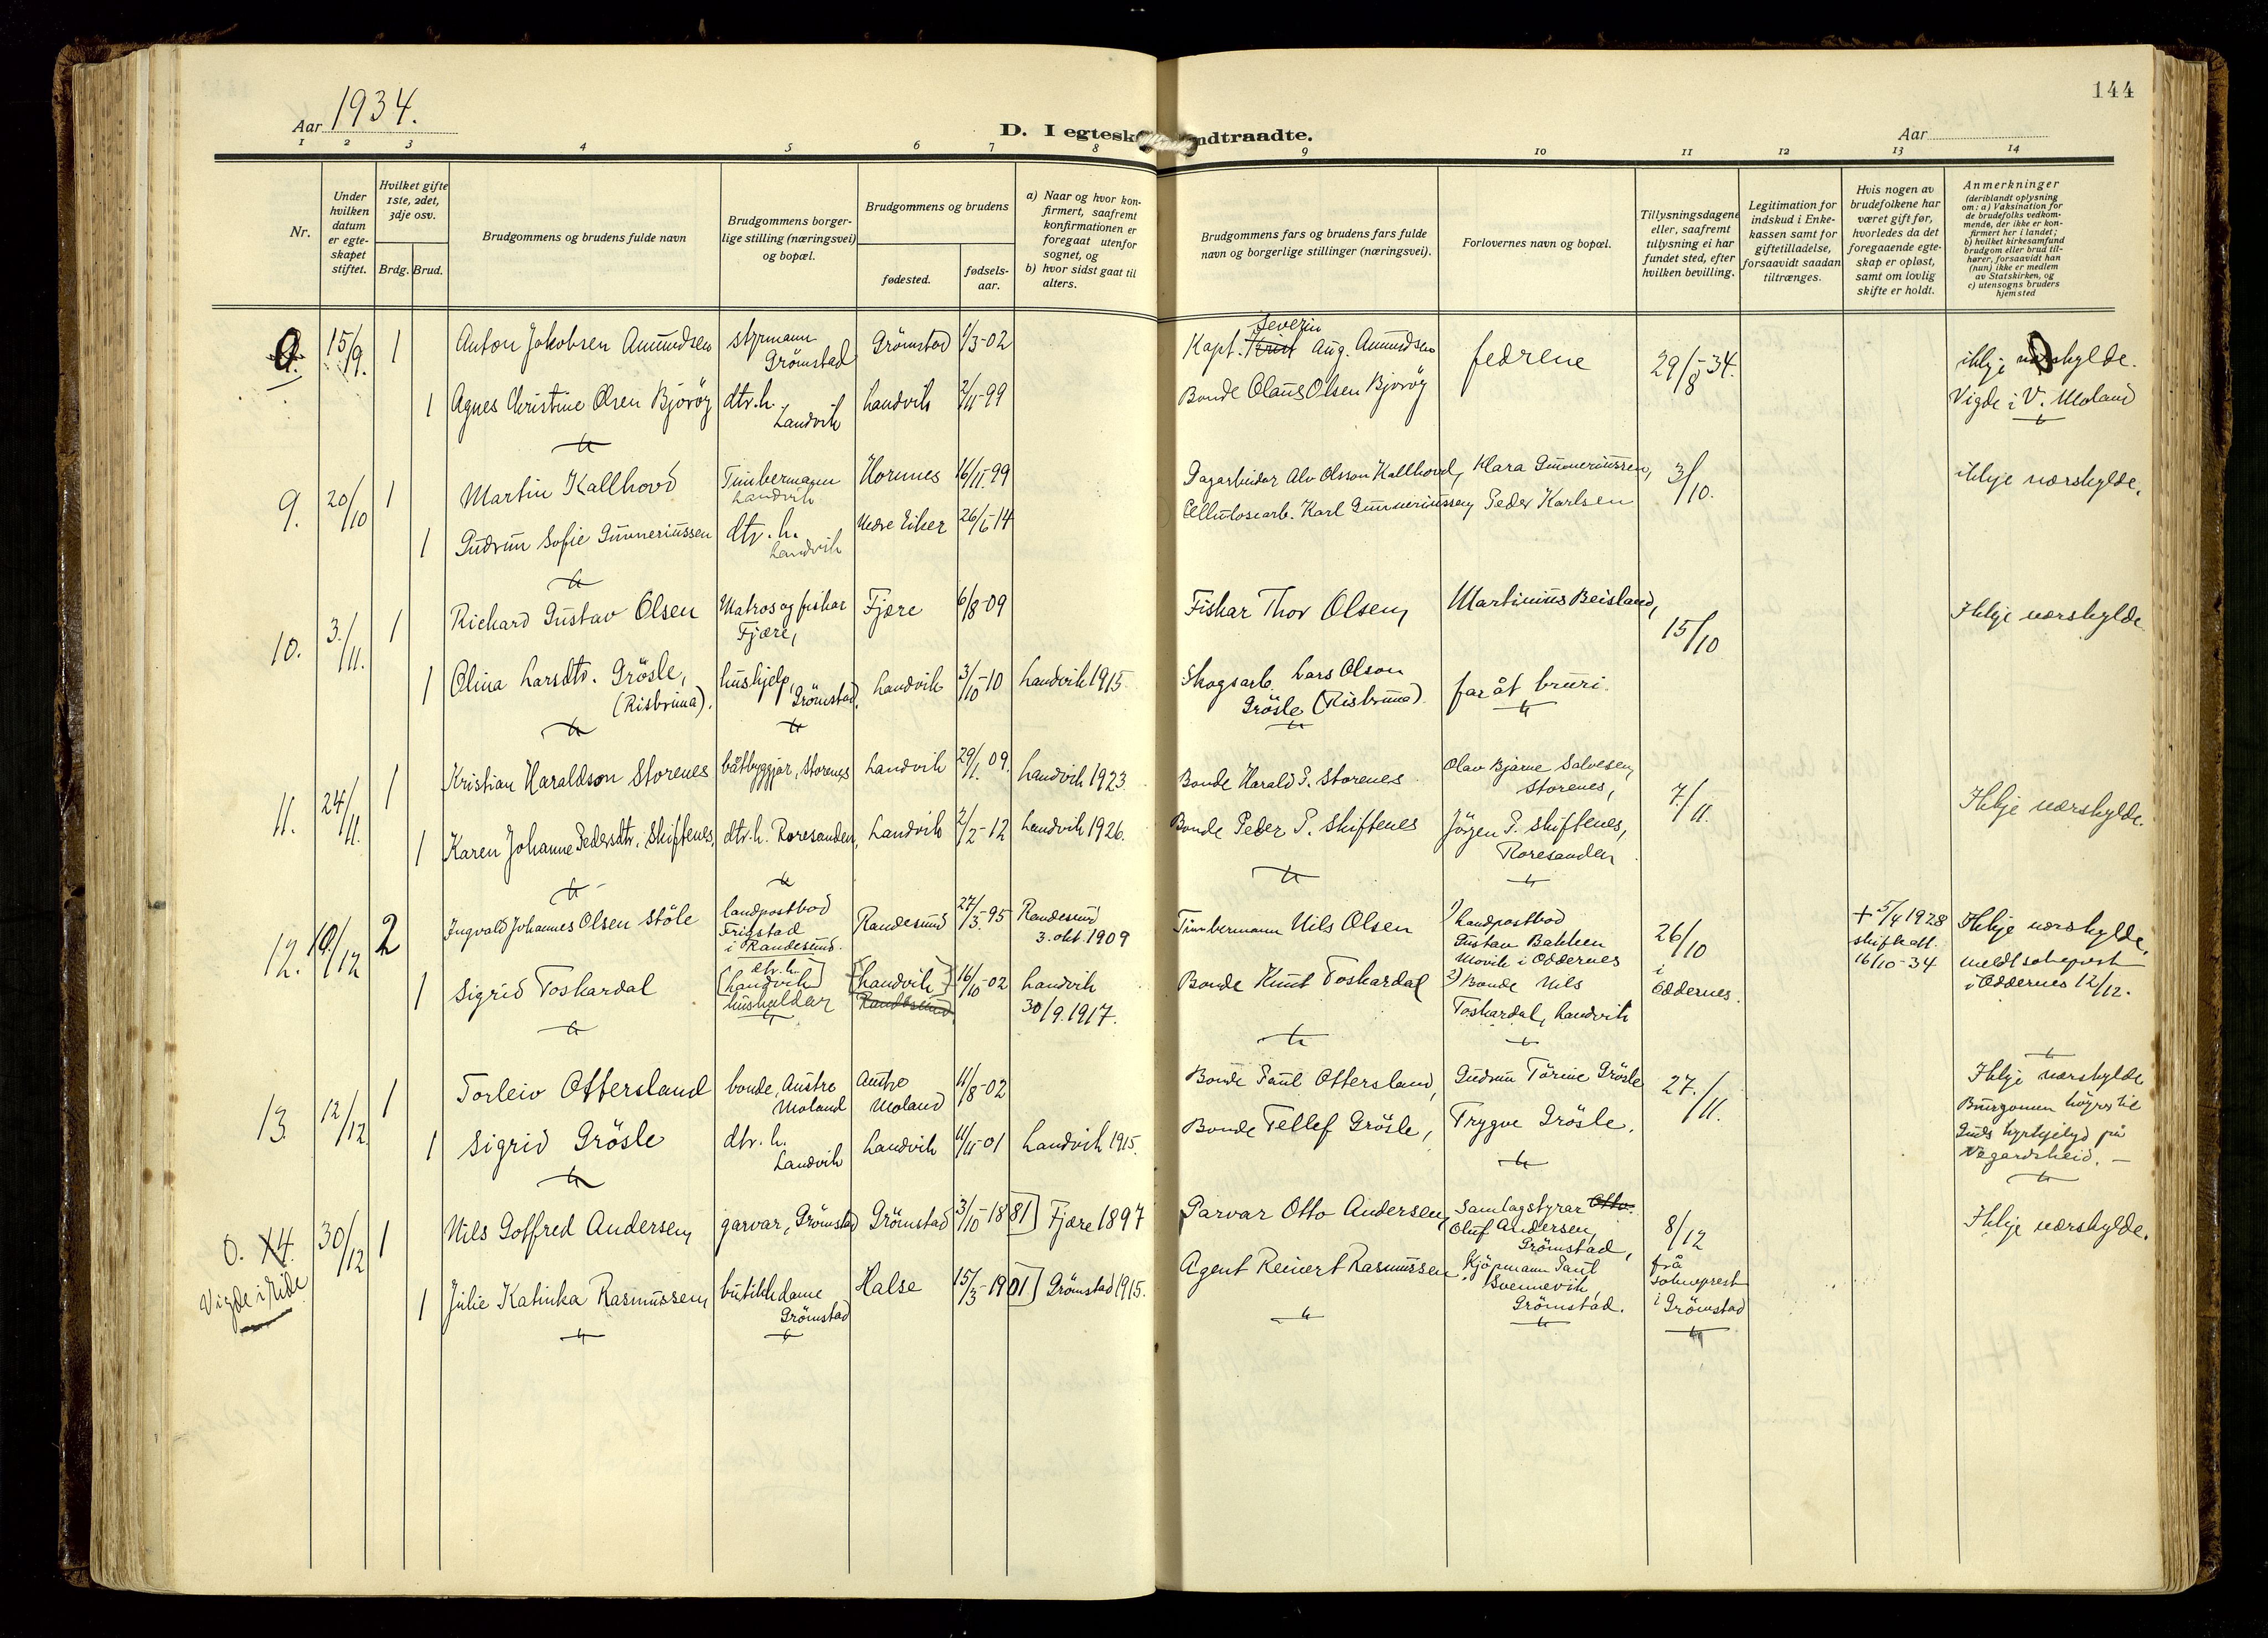 144
Aar 1934.
D. I egtesk ndtraadte.
Aar
1 2 3 4 5 6 7 8 9 10 11 12 13 14
Nr.
Under hvilken datum er egteskapet stiftet.
Hvilket gifte 1ste, 2det, 3dje osv.
Brdg. Brud.
Brudgommens og brudens fulde navn
Brudgommens borgerlige stilling (næringsvei) og bopæl.
Brudgommens og brudens
fødested.
fødselsaar.
a) Naar og hvor konfirmert, saafremt konfirmationen er foregaat utenfor sognet, og
b) hvor sidst gaat til alters.
Brudgommens fars og brudens fars fulde navn og borgerlige stillinger (næringsvei).
Forlovernes navn og bopæl.
Tillysningsdagene eller, saafremt tillysning ei har fundet sted, efter hvilken bevilling.
Legitimation for indskud i Enkekassen samt for giftetilladelse, forsaavidt saadan tiltrænges.
Hvis nogen av brudefolkene har været gift før, hvorledes da det foregaaende egteskap er opløst, samt om lovlig skifte er holdt.
Anmerkninger (deriblandt oplysning om: a) Vaksination for de brudefolks vedkommende, der ikke er konfirmert her i landet; b) hvilket kirkesamfund brudgom eller brud tilhører, forsaavidt han (hun) ikke er medlem av Statskirken, og c) utensogns bruders hjemsted
0. 15/9. 1 Anton Jakobsen Amundsen styrmann Grömstad Grömstad 1/3-02 Kapt. Severin Aug. Amundsen fedrene 29/8-34. ikkje nærskylde.
1 Agnes Christine Olsen Bjorøy dtr. h. Landvik Landvik 2/11-99 Bonde Olaus Olsen Bjorøy Vigde i V. Moland
9. 20/10 1 Martin Kallhovd Timbermann Landvik Hornnes 16/11.99 Dagarbeidar Alv Olsson Kallhovd, Klara Gunneriussen, 3/10. ikkje nærskylde.
1 Gudrun Sofie Gunneriussen dtr. h. Landvik Nedre Eiker 26/6-14 Cellulosearb. Karl Gunneriussen, Peder Karlsen
10. 3./11. 1 Richard Gustav Olsen Matros og fiskar Fjære, Fjære 6/8-09 Fiskar Thor Olsen, Martinius Beisland, 15/10 Ikkje nærskylde
1 Olina Larsdtr. Grösle, (Risbruna). hushjelp, Grömstad. Landvik 3/10-10 Landvik 1915. Skogsarb. Lars Olson Grösle (Risbruna) far åt bruri.
11. 24/11. 1 Kristian Haraldson Storenes båtbyggjar, Storenes Landvik 29/1. 09. Landvik 1923. Bonde Harald P. Storenes Olav Bjarne Salvesen, Storenes, 7./11. Ikkje nærskylde.
1 Karen Johanne Pedersdtr. Skiftenes, dtr. h. Roresanden, Landvik 2/2-12 Landvik 1926. Bonde Peder P. Skiftenes Jörgen P. Skiftenes, Roresanden
12. 10/12 2 Ingvald Johannes Olsen Støle landpostbod Frigstad i Randesund. Randesund 27/3-95 Randesund 3. okt. 1909 Timbermann Nils Olsen 1) Landpostbod Gustav Bakken Movik i Oddernes 26/10 i Oddernes. + 5/4 1928 skifteatt. 16/10-34 Ikkje nærskylde, meldt sokneprest i Oddernes 12/12.
1 Sigrid Toskardal [dtr. h. Landvik] hushaldar [Landvik] Randesund 16/10-02 Landvik 30/9. 1917. Bonde Knut Toskardal 2) Bonde Nils Toskardal, Landvik
13. 12/12. 1 Torleiv Ottersland bonde, Austre Moland Austre Moland 11/8-02 Bonde Paul Ottersland, Gudrun Torine Grösle 27./11. Ikkje nærskylde Burgomen höyrer til Guds kyrkjelyd på Vegardsheid. —
1 Sigrid Grösle dtr. h. Landvik Landvik 11/11-01 Landvik 1915. Bonde Tellef Grösle, Trygve Grösle.
0. 14. Vigde i Eide 30/12 1 Nils Gotfred Andersen, garvar, Grömstad Grömstad 3/10-1881] Fjære 1897 Garvar Otto Andersen, Samlagstyrar Otto. Oluf Andersen, Grömstad, 8/12 frå sokneprest i Grömstad Ikkje nærskylde.
1 Julie Katinka Rasmussen, butikkdame Grömstad Halse 15/3-1901] Grömstad 1915. Agent Reinert Rasmussen Kjöpmann Paul Svennevik, Grömstad.